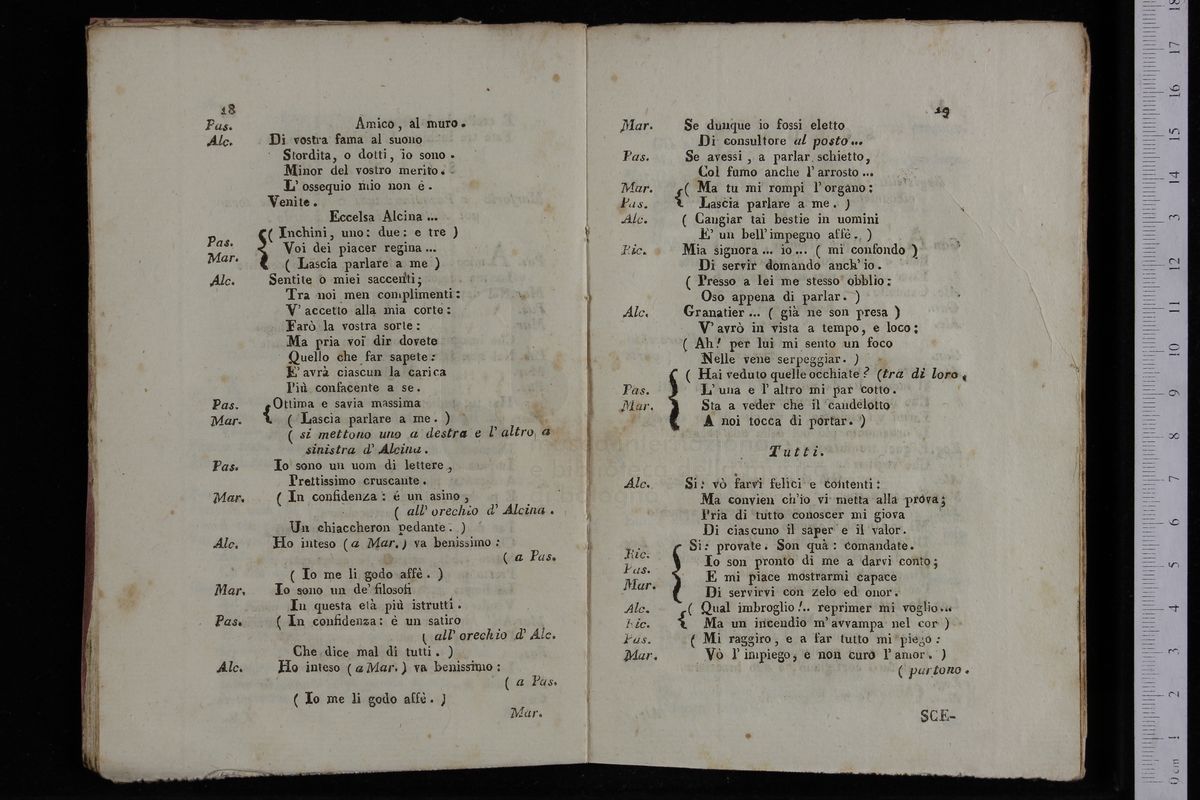 18
Pas. Amico, al muro.
Alc. Di vostra fama al suono
Stordita, o dotti, io sono.
Minor del vostro merito.
L' ossequio mio non é.
Venite.
Eccelsa Alcina ...
Pas. ( Inchini, uno: due: e tre )
Voi dei piacer regina ...
Mar. ( Lascia parlare a me )
Alc. Sentite o miei saccenti;
Tra noi men complimenti:
V' accetto alla mia corte:
Farò la vostra sorte:
Ma pria voi dir dovete
Quello che far sapete:
E' avrà ciascun la carica
Più confacente a se.
Pas. Ottima e savia massima
Mar. ( Lascia parlare a me. )
( si mettono uno a destra e l' altro a
sinistra d' Alcina.
Pas. Io sono un uom di lettere,
Prettissimo cruscante.
Mar. ( In confidenza: é un asino,
( all' orechio d' Alcina.
Un chiaccheron pedante. )
Alc. Ho inteso (a Mar.) va benissimo:
( a Pas.
( Io me li godo affè. )
Mar. Io sono un de' filosofi
In questa età più istrutti.
Pas. ( In confidenza: è un satiro
( all' orechio d' Alc.
Che dice mal di tutti. )
Alc. Ho inteso (a Mar.) va benissimo:
( a Pas.
( Io me li godo affè. )
Mar.
19
Mar. Se dunque io fossi eletto
Di consultore al posto ...
Pas. Se avessi, a parlar schietto,
Col fumo anche l' arrosto ...
Mar. ( Ma tu mi rompi l' organo:
Pas. Lascia parlare a me. )
Alc. ( Cangiar tai bestie in uomini
E' un bell' impegno affè. )
Ric. Mia signora ... io ... ( mi confondo )
Di servir domando anch' io.
( Presso a lei me stesso obblio:
Oso appena di parlar. )
Alc. Granatier ... ( già ne son presa )
V' avrò in vista a tempo, e loco:
( Ah! per lui mi sento un foco
Nelle vene serpeggiar. )
( Hai veduto quelle occhiate? (tra di loro.
Pas. L' una e l' altro mi par cotto.
Mar. Sta a veder che il candelotto
A noi tocca di portar. )
Tutti.
Alc. Si: vò farvi felici e contenti:
Ma convien ch'io vi metta alla prova;
Pria di tutto conoscer mi giova
Di ciascuno il saper e il valor.
Si: provate. Son quà: comandate.
Ric. Io son pronto di me a darvi conto;
Pas. E mi piace mostrarmi capace
Mar. Di servirvi con zelo ed onor.
Alc. ( Qual imbroglio!.. reprimer mi voglio...
Ric. Ma un incendio m' avvampa nel cor )
Pas. ( Mi raggiro, e a far tutto mi piego:
Mar. Vò l' impiego, e non curo l' amor. )
( partono.
SCE-